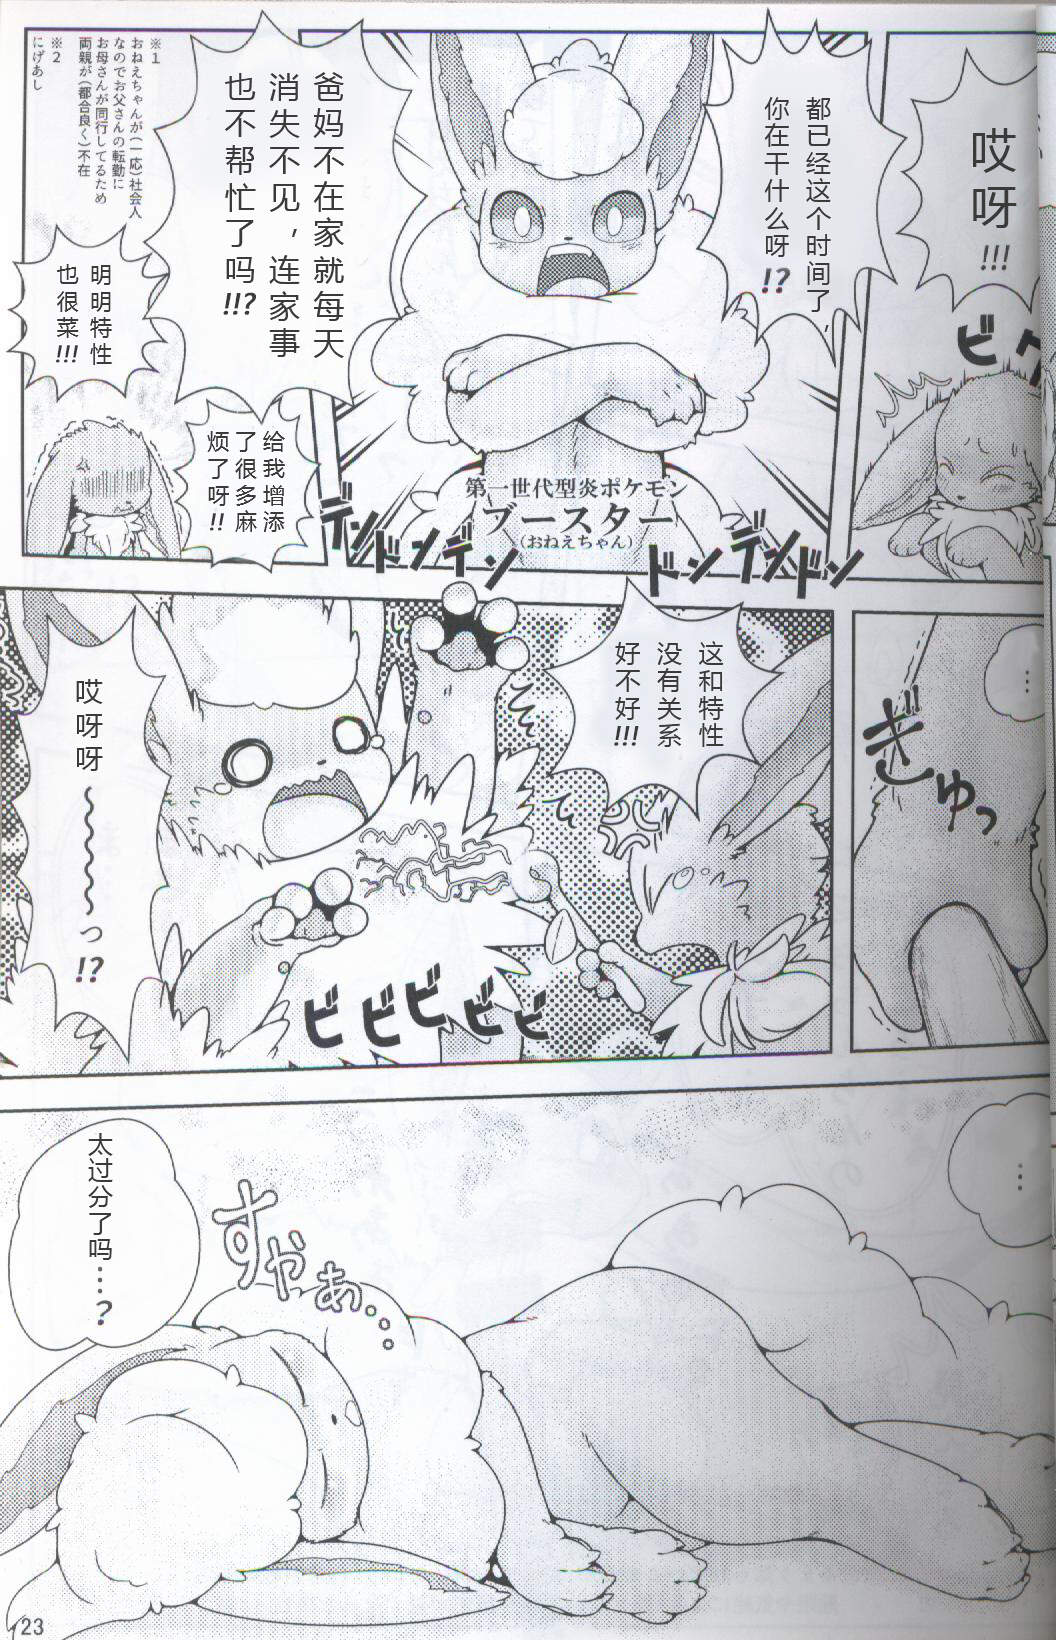 哎
呀
!!!
ビ
都已经这个时间了，
你在干什么呀!?
爸妈不在家就每天
消失不见，连家事
也不帮忙了吗!!?
※１
おねえちゃんが(一応)社会人
なのでお父さんの転勤に
お母さんが同行してるため
両親が(都合良く)不在
※２
にげあし
给我增添
了很多麻
烦了呀!!
明明特性
也很菜!!!
第一世代型炎ポケモン
ブースター
(おねえちゃん)
デンドンデン
ドンデンドン
…
ぎゅっ
这和特性
没有关系
好不好!!!
ビビビビビ
哎呀呀～～～～～っ!?
…
太过分了吗…?
すやぁ…
23